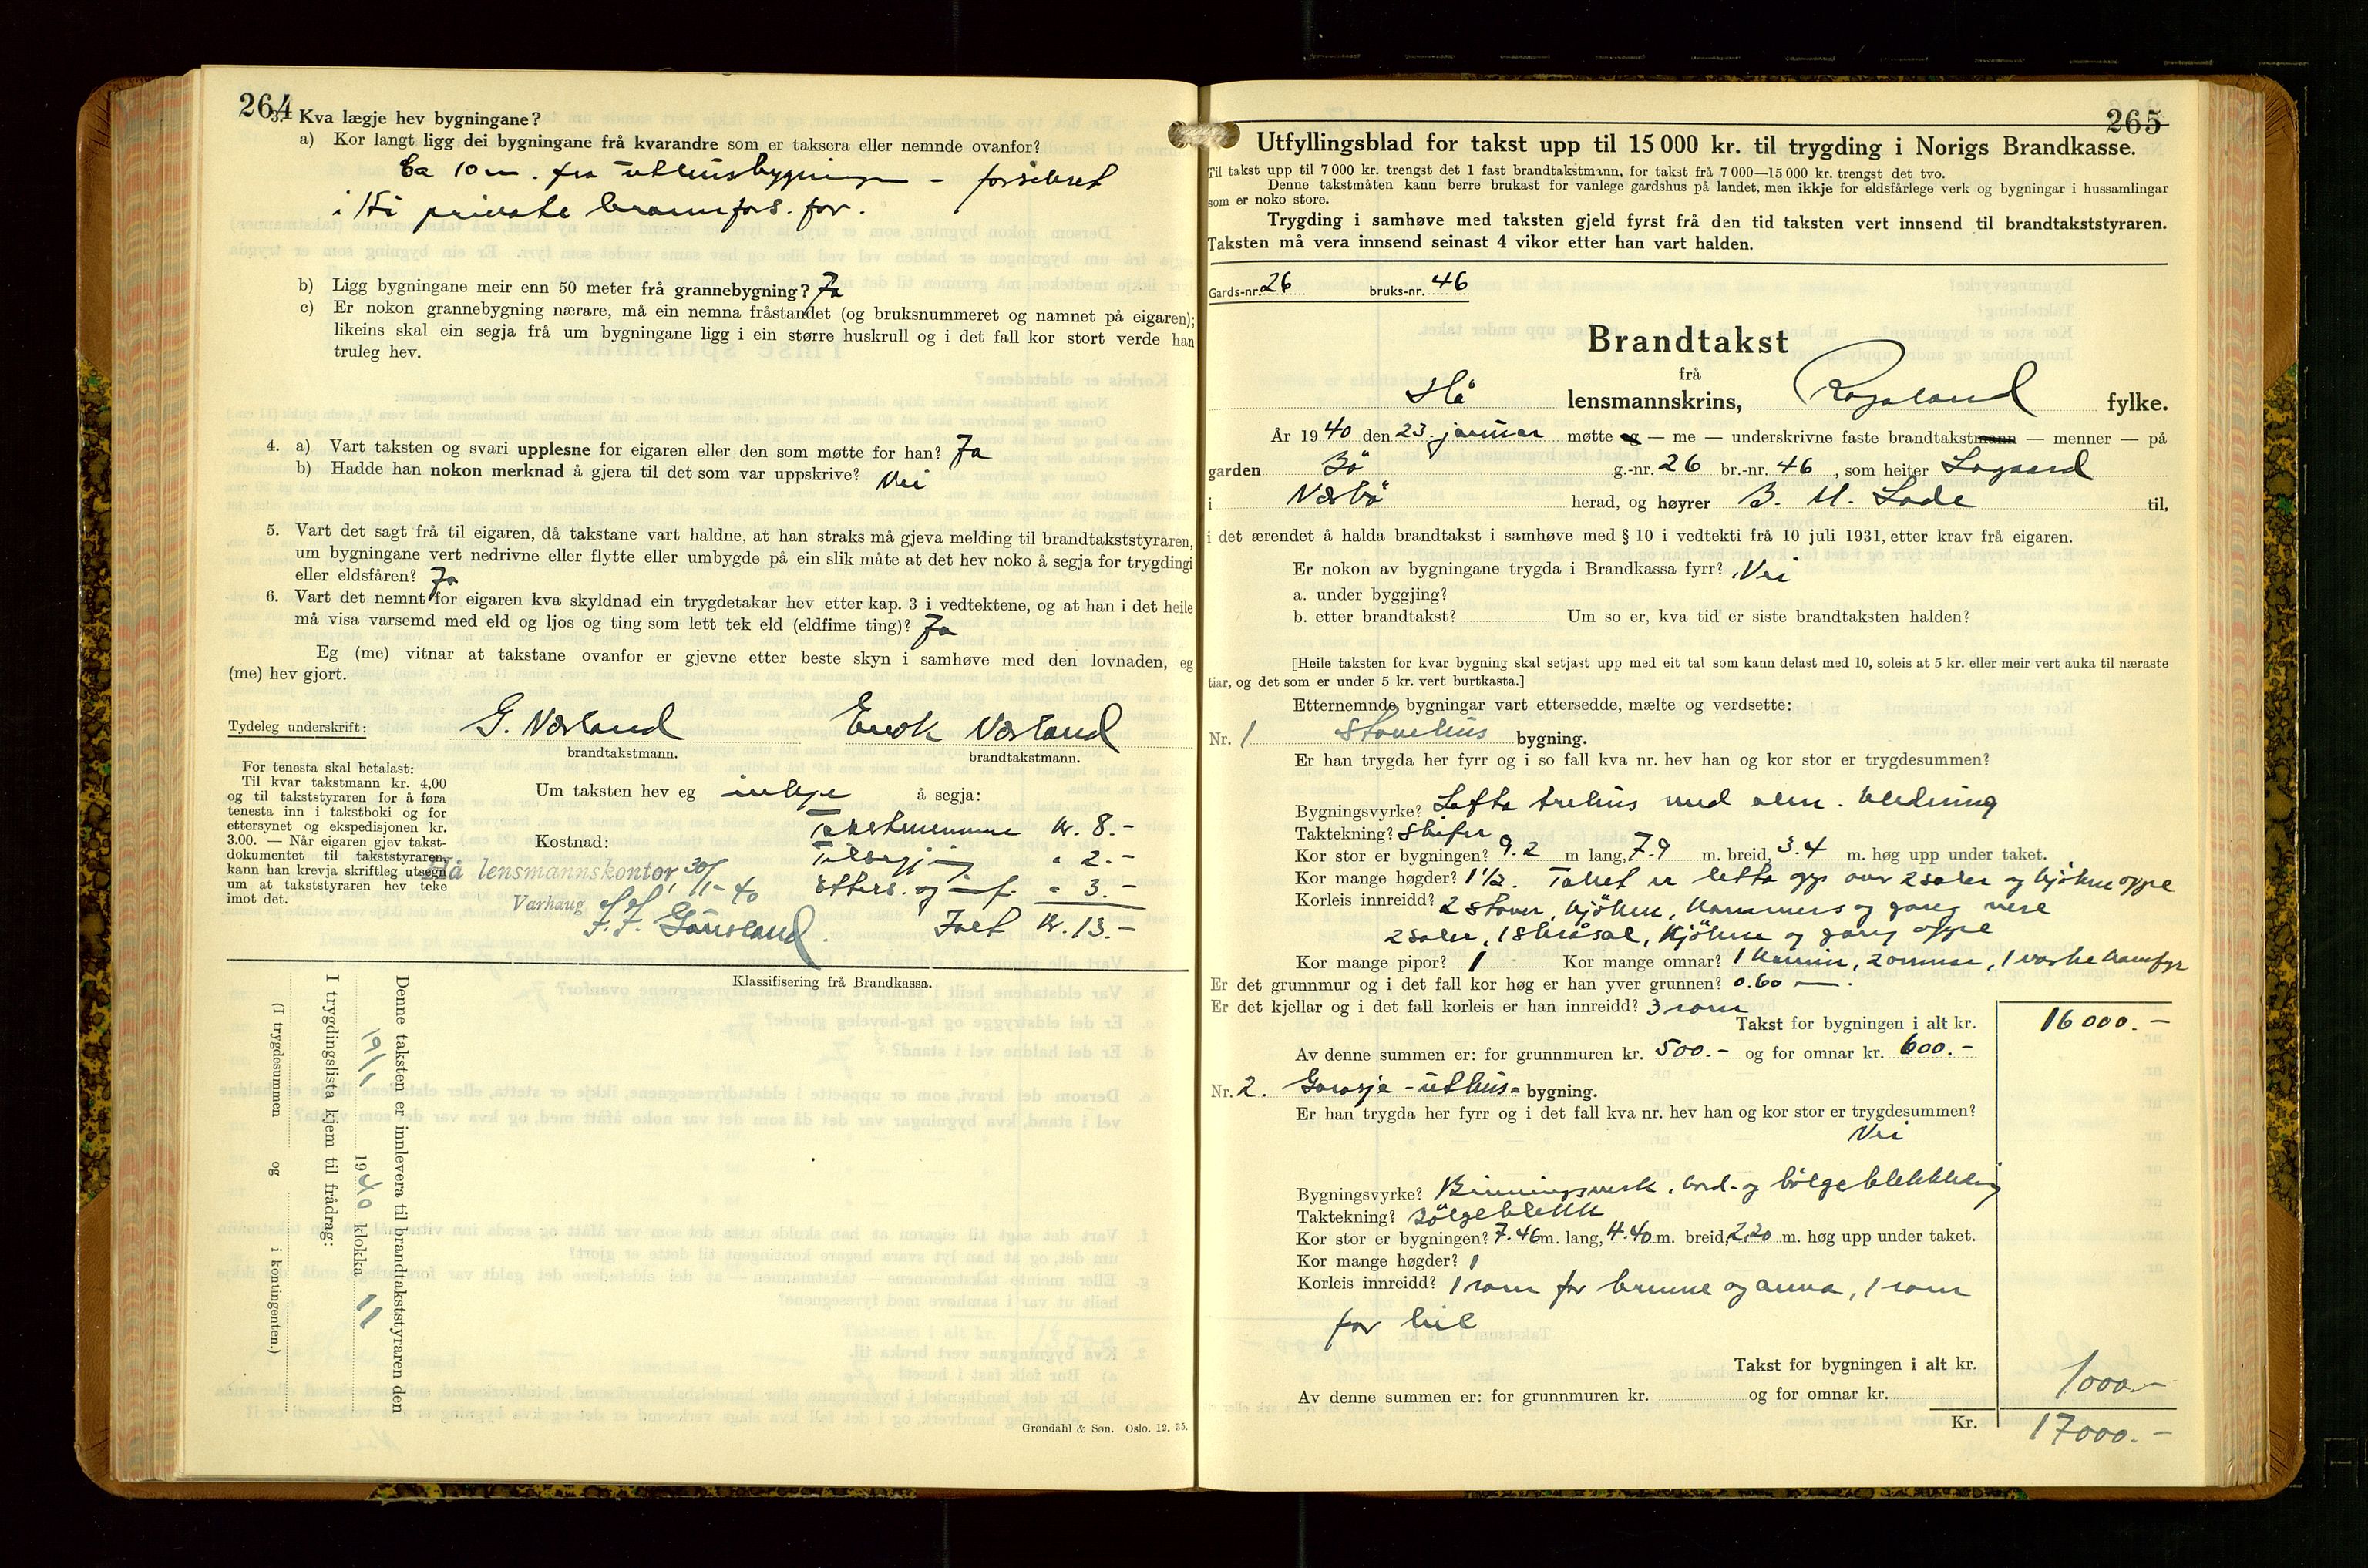 264
3. Kva lægje hev bygningane?
a) Kor langt ligg dei bygningane frå kvarandre som er taksera eller nemnde ovanfor?
Ca 10 m. fra uthusbygningen – forsikret
i Hå private brannfors. for.
b) Ligg bygningane meir enn 50 meter frå grannebygning? Ja
c) Er nokon grannebygning nærare, må ein nemna fråstandet (og bruksnummeret og namnet på eigaren);
likeins skal ein segja frå um bygningane ligg i ein større huskrull og i det fall kor stort verde han
truleg hev.
4. a) Vart taksten og svari upplesne for eigaren eller den som møtte for han? Ja
b) Hadde han nokon merknad å gjera til det som var uppskrive? Nei
5. Vart det sagt frå til eigaren, då takstane vart haldne, at han straks må gjeva melding til brandtakststyraren,
um bygningane vert nedrivne eller flytte eller umbygde på ein slik måte at det hev noko å segja for trygdingi
eller eldsfåren? Ja
6. Vart det nemnt for eigaren kva skyldnad ein trygdetakar hev etter kap. 3 i vedtektene, og at han i det heile
må visa varsemd med eld og ljos og ting som lett tek eld (eldfime ting)? Ja
Eg (me) vitnar at takstane ovanfor er gjevne etter beste skyn i samhøve med den lovnaden, eg
(me) hev gjort.
Tydeleg underskrift: G. Nærland Enok Nærland
brandtakstmann. brandtakstmann.
For tenesta skal betalast:
Til kvar takstmann kr. 4,00
og til takststyraren for å føra
tenesta inn i takstboki og for
ettersynet og ekspedisjonen kr.
3.00. — Når eigaren gjev takst-
dokumentet til takststyraren,
kann han krevja skriftleg utsegn
um at takststyraren hev teke
imot det.
Um taksten hev eg inkje å segja:
Kostnad:
Takstmennene kr. 8.-
Tilsegjing " 2.-
Etters. og innf. " 3.-
Ialt kr. 13.-
Hå lensmannskontor, 30/1-40
Varhaug
Klassifisering frå Brandkassa.
Denne taksten er innlevera til brandtakststyraren den
19/1 1940 klokka 11
I trygdingslista kjem til frådrag:
(I trygdesummen og i kontingenten.)
Grøndahl & Søn. Oslo. 12. 35.
265
Utfyllingsblad for takst upp til 15 000 kr. til trygding i Norigs Brandkasse.
Til takst upp til 7 000 kr. trengst det 1 fast brandtakstmann, for takst frå 7 000—15 000 kr. trengst det tvo.
Denne takstmåten kann berre brukast for vanlege gardshus på landet, men ikkje for eldsfårlege verk og bygningar i hussamlingar
som er noko store.
Trygding i samhøve med taksten gjeld fyrst frå den tid taksten vert innsend til brandtakststyraren.
Taksten må vera innsend seinast 4 vikor etter han vart halden.
Gards-nr. 26 bruks-nr. 46
Brandtakst
frå
Hå lensmannskrins, Rogaland fylke.
År 1940 den 23. januar møtte eg — me — underskrivne faste brandtakstmann — menner — på
garden Bö g.-nr. 26 br.-nr. 46, som heiter Lagaard
i Nærbö herad, og høyrer B. H. Lode til,
i det ærendet å halda brandtakst i samhøve med § 10 i vedtekti frå 10 juli 1931, etter krav frå eigaren.
Er nokon av bygningane trygda i Brandkassa fyrr? Nei
a. under byggjing?
b. etter brandtakst? Um so er, kva tid er siste brandtaksten halden?
[Heile taksten for kvar bygning skal setjast upp med eit tal som kann delast med 10, soleis at 5 kr. eller meir vert auka til næraste
tiar, og det som er under 5 kr. vert burtkasta.]
Etternemnde bygningar vart ettersedde, mælte og verdsette:
Nr. 1 Stovehús bygning.
Er han trygda her fyrr og i so fall kva nr. hev han og kor stor er trygdesummen?
Bygningsvyrke? Lofta trehus med alm. kledning
Taktekning? Skifer
Kor stor er bygningen? 9.2 m lang, 7.9 m. breid, 3.4 m. høg upp under taket.
Kor mange høgder? 1 1/2. Taket er lofta opp over 2 saler og kjökken oppe
Korleis innreidd? 2 stover, kjöken, kammers og gang nere
2 saler, 1 skråsal, kjöken og gang oppe
Kor mange pipor? 1 Kor mange omnar? 1 kamin, 2 omnar, 1 vaske komfyr
Er det grunnmur og i det fall kor høg er han yver grunnen? 0.60 —.
Er det kjellar og i det fall korleis er han innreidd? 3 rom
Takst for bygningen i alt kr. 16000.-
Av denne summen er: for grunnmuren kr. 500.- og for omnar kr. 600.-
Nr. 2. Garasje - uthus- bygning.
Er han trygda her fyrr og i det fall kva nr. hev han og kor stor er trygdesummen?
Nei
Bygningsvyrke? Binningsverk, bord- og bölgeblekkledn
Taktekning? Bölgeblekk
Kor stor er bygningen? 7.46 m. lang, 4.40 m. breid, 2,20 m. høg upp under taket.
Kor mange høgder? 1
Korleis innreidd? 1 rom for brenne og anna, 1 rom
for bil
Takst for bygningen i alt kr. 1000.-
Av denne summen er: for grunnmuren kr. og for omnar kr.
Kr. 17000.-